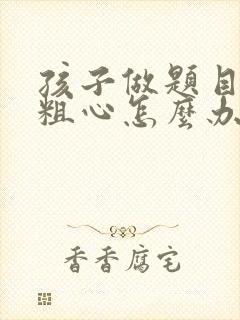 孩子做題目
粗心怎麼办
香香腐宅